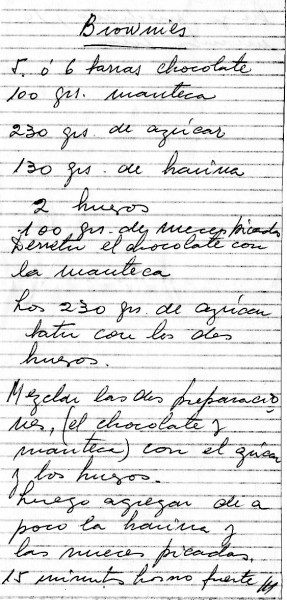 Brownies
5. ó 6 barras chocolate
100 grs. manteca
230 grs. de azúcar
130 grs. de harina
2 huevos
100 grs. de nueces picadas
Derretir el chocolate con
la manteca
Los 230 grs. de azúcar
batir con los dos
huevos.
Mezclar las dos preparacio
nes, (el chocolate y
manteca) con el azúcar
y los huevos.
Luego agregar de a
poco la harina y
las nueces picadas.
15 minutos horno fuerte